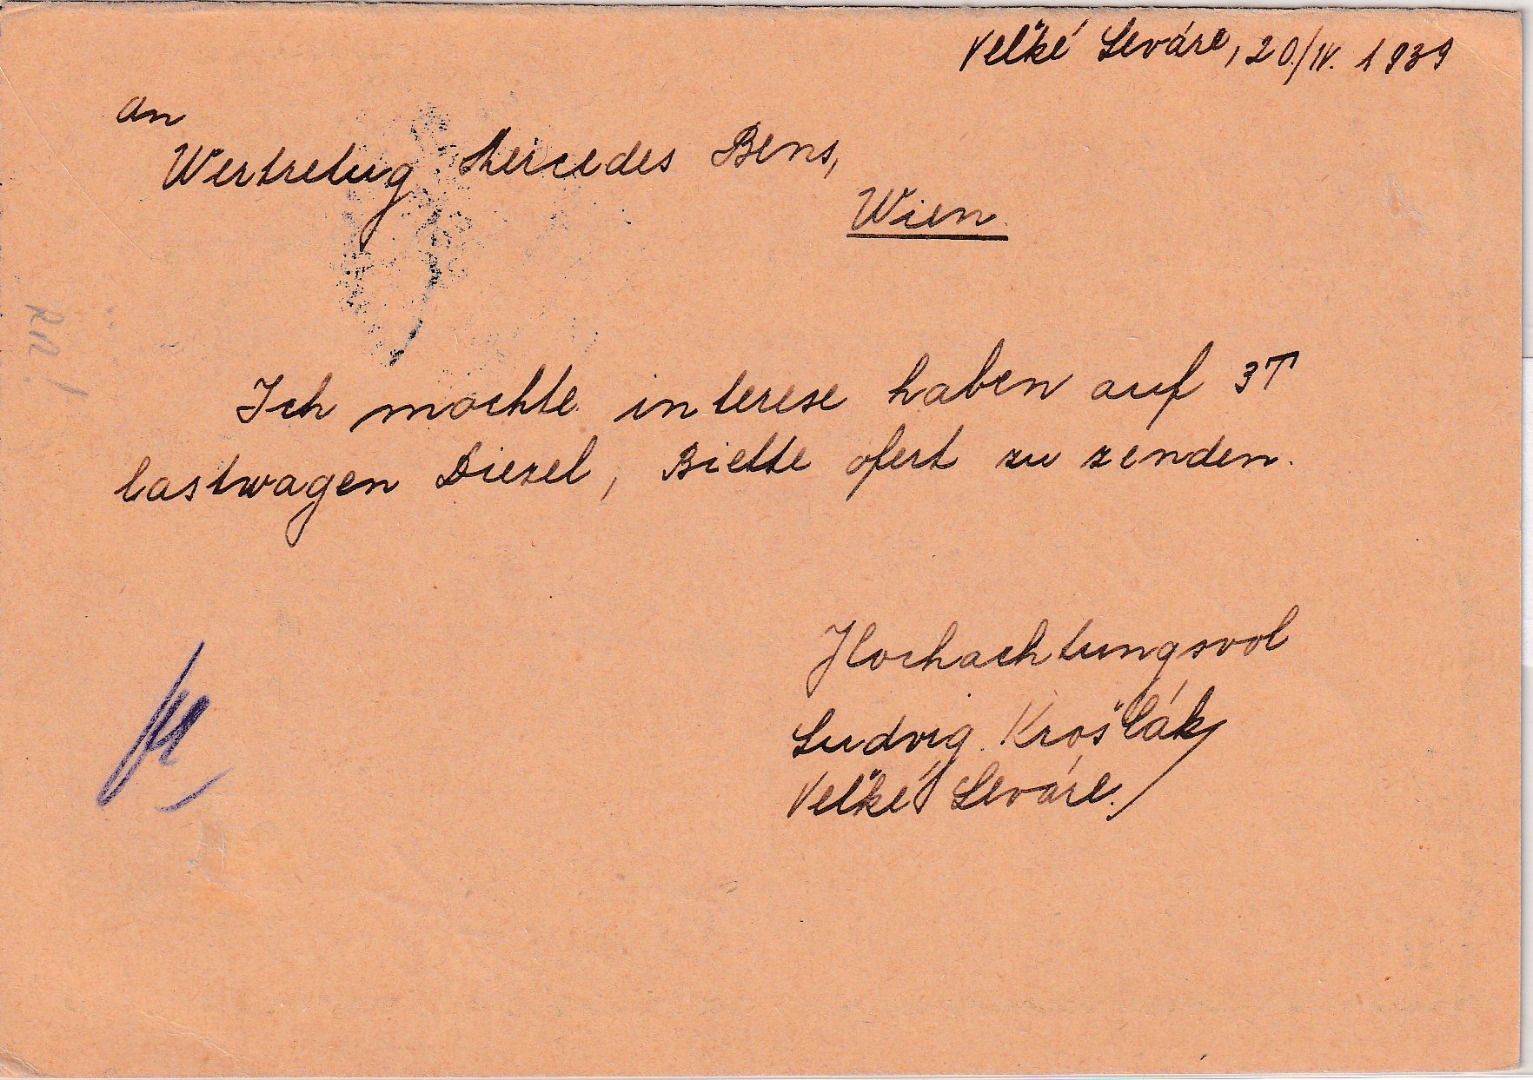 Veľké Leváre, 20./IV. 1939
An
Wertretug Mercedes Bens,
Wien.
Ich mochte interese haben auf 3T
lastwagen Diesel, Biette ofert zu zenden.
Hochachtungsvol
Ludvig Krošlák
Veľké Leváre.